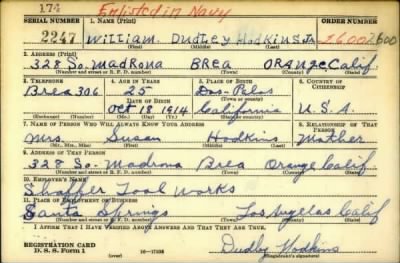 174 Enlisted in Navy
SERIAL NUMBER 1. NAME (Print) ORDER NUMBER
2247 William Dudley Hodkins Jr 2600
(First) (Middle) (Last)
2. ADDRESS (Print)
328 So. Madrona BREA ORANGE Calif.
(Number and street or R. F. D. number) (Town) (County) (State)
3. TELEPHONE 4. AGE IN YEARS 5. PLACE OF BIRTH 6. COUNTRY OF CITIZENSHIP
Brea 306 25 Dos-Palos
DATE OF BIRTH (Town or county)
Oct 18, 1914 California U.S.A.
(Mo.) (Day) (Yr.) (State or country)
7. NAME OF PERSON WHO WILL ALWAYS KNOW YOUR ADDRESS 8. RELATIONSHIP OF THAT PERSON
Mrs. Susan Hodkins Mother
(Mr., Mrs., Miss) (First) (Middle) (Last)
9. ADDRESS OF THAT PERSON
328 So- Madrona Brea Orange Calif
(Number and street or R. F. D. number) (Town) (County) (State)
10. EMPLOYER'S NAME
Shaffer Tool Works
11. PLACE OF EMPLOYMENT OR BUSINESS
Santa Springs Los Angelas Calif
(Number and street or R. F. D. number) (Town) (County) (State)
I AFFIRM THAT I HAVE VERIFIED ABOVE ANSWERS AND THAT THEY ARE TRUE.
REGISTRATION CARD
D. S. S. Form 1 16-17105 Dudley Hodkins